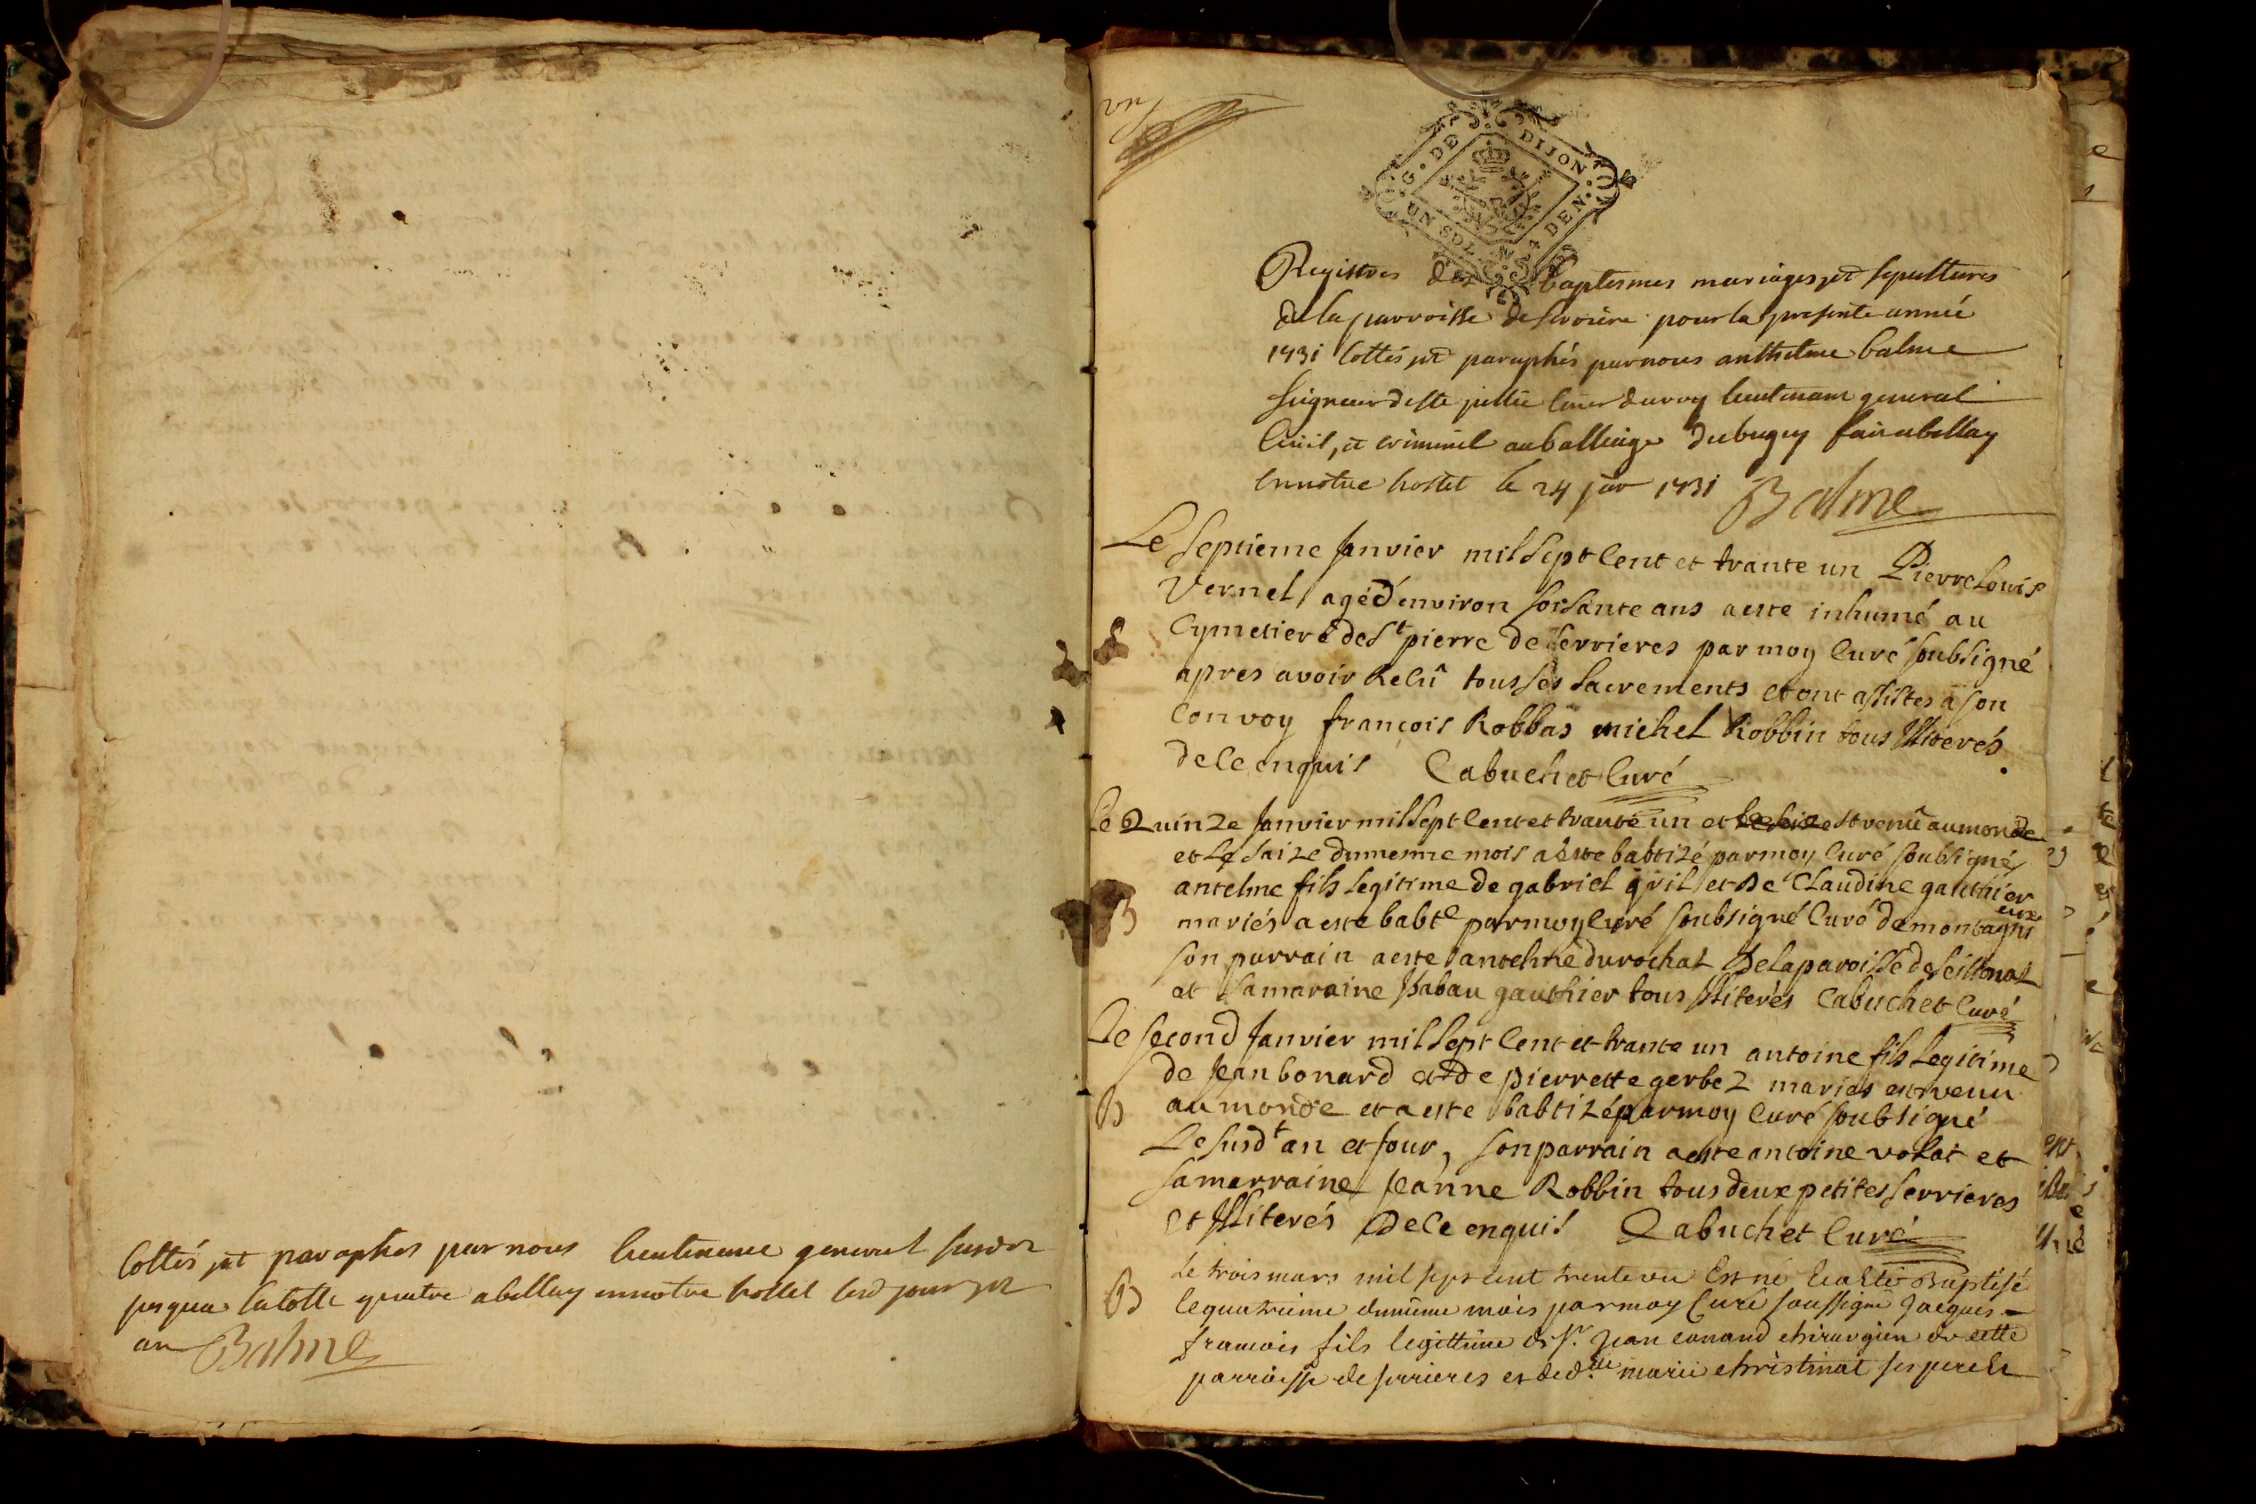 Cottés et paraphés par nous lieutenant general susd
jusqua la cotte quatre a bellay en notre hostel lesd jour et
an Balme
un
G. DE DIJON
UN SOL. 4 DEN.
Registres des baptesmes mariages et sepultures
de la parroisse de serriere pour la presente année
1731 Cottés et paraphés par nous anthelme balme
seigneur de ste julie Coner du roy lieutenant general
Civil, et criminel au balliage du bugey fait a bellay
en notre hostel le 24 janv 1731 Balme
Le septieme Janvier mil sept Cent et trante un Pierre Louis
Vernel, agé d'environ soisante ans a este inhumé au
Cymetiere de St pierre de serrieres par moy Curé soubsigné
apres avoir Recû tous ses sacrements et ont assistes a son
Convoy françois Robbas michel Robbin tous Illiterés
de Ce enquis Cabuchet Curé
Le Quinze Janvier mil sept Cent et trante un et le seize est venû au monde
et Le saize du mesme mois a este babtizé par moy Curé soubsigné
antelme fils legitime de gabriel gril et de Claudine gauthier
mariés a este babte par moy Curé soubsigné Curé de montagnieux
son parrain a este antelme durochat de la paroisse de seillonat
et sa maraine Isabau gauthier tous Illiterés Cabuchet Curé
Le second Janvier mil sept Cent et trante un antoine fils Legitime
de Jean bonard et de pierrette gerbez mariés est venu
B au monde et a este babtizé par moy Curé soubsigné
Le susdt an et Jour, son parrain a este antoine volat et
sa marraine Jeanne Robbin tous deux petites serrieres
et Illiterés de Ce enquis Cabuchet Curé
Le trois mars mil sept cent trente un Est né Et a Eté Baptisé
B le quatrieme du meme mois par moy Curé soussigné Jacques
francois fils legittime de Sr. Jean conand chirurgien de cette
parroisse de serrieres et de d.lle marie christinat ses pere Et